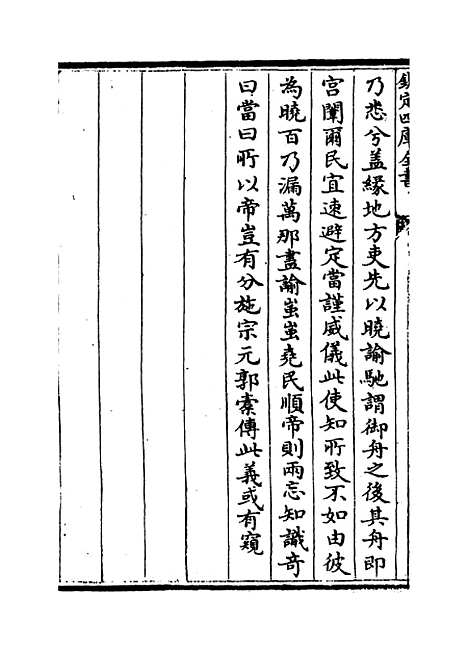 欽定四庫全書
乃悲兮蓋緣地方吏先以曉諭馳謂御舟之後其舟即
宫闈爾民宜速避定當謹威儀此使知所致不如由彼
為曉百乃漏萬那盡諭蚩蚩堯民順帝則兩忘知識奇
曰當曰所以帝豈有分施宗元郭槖傳此義或有窺